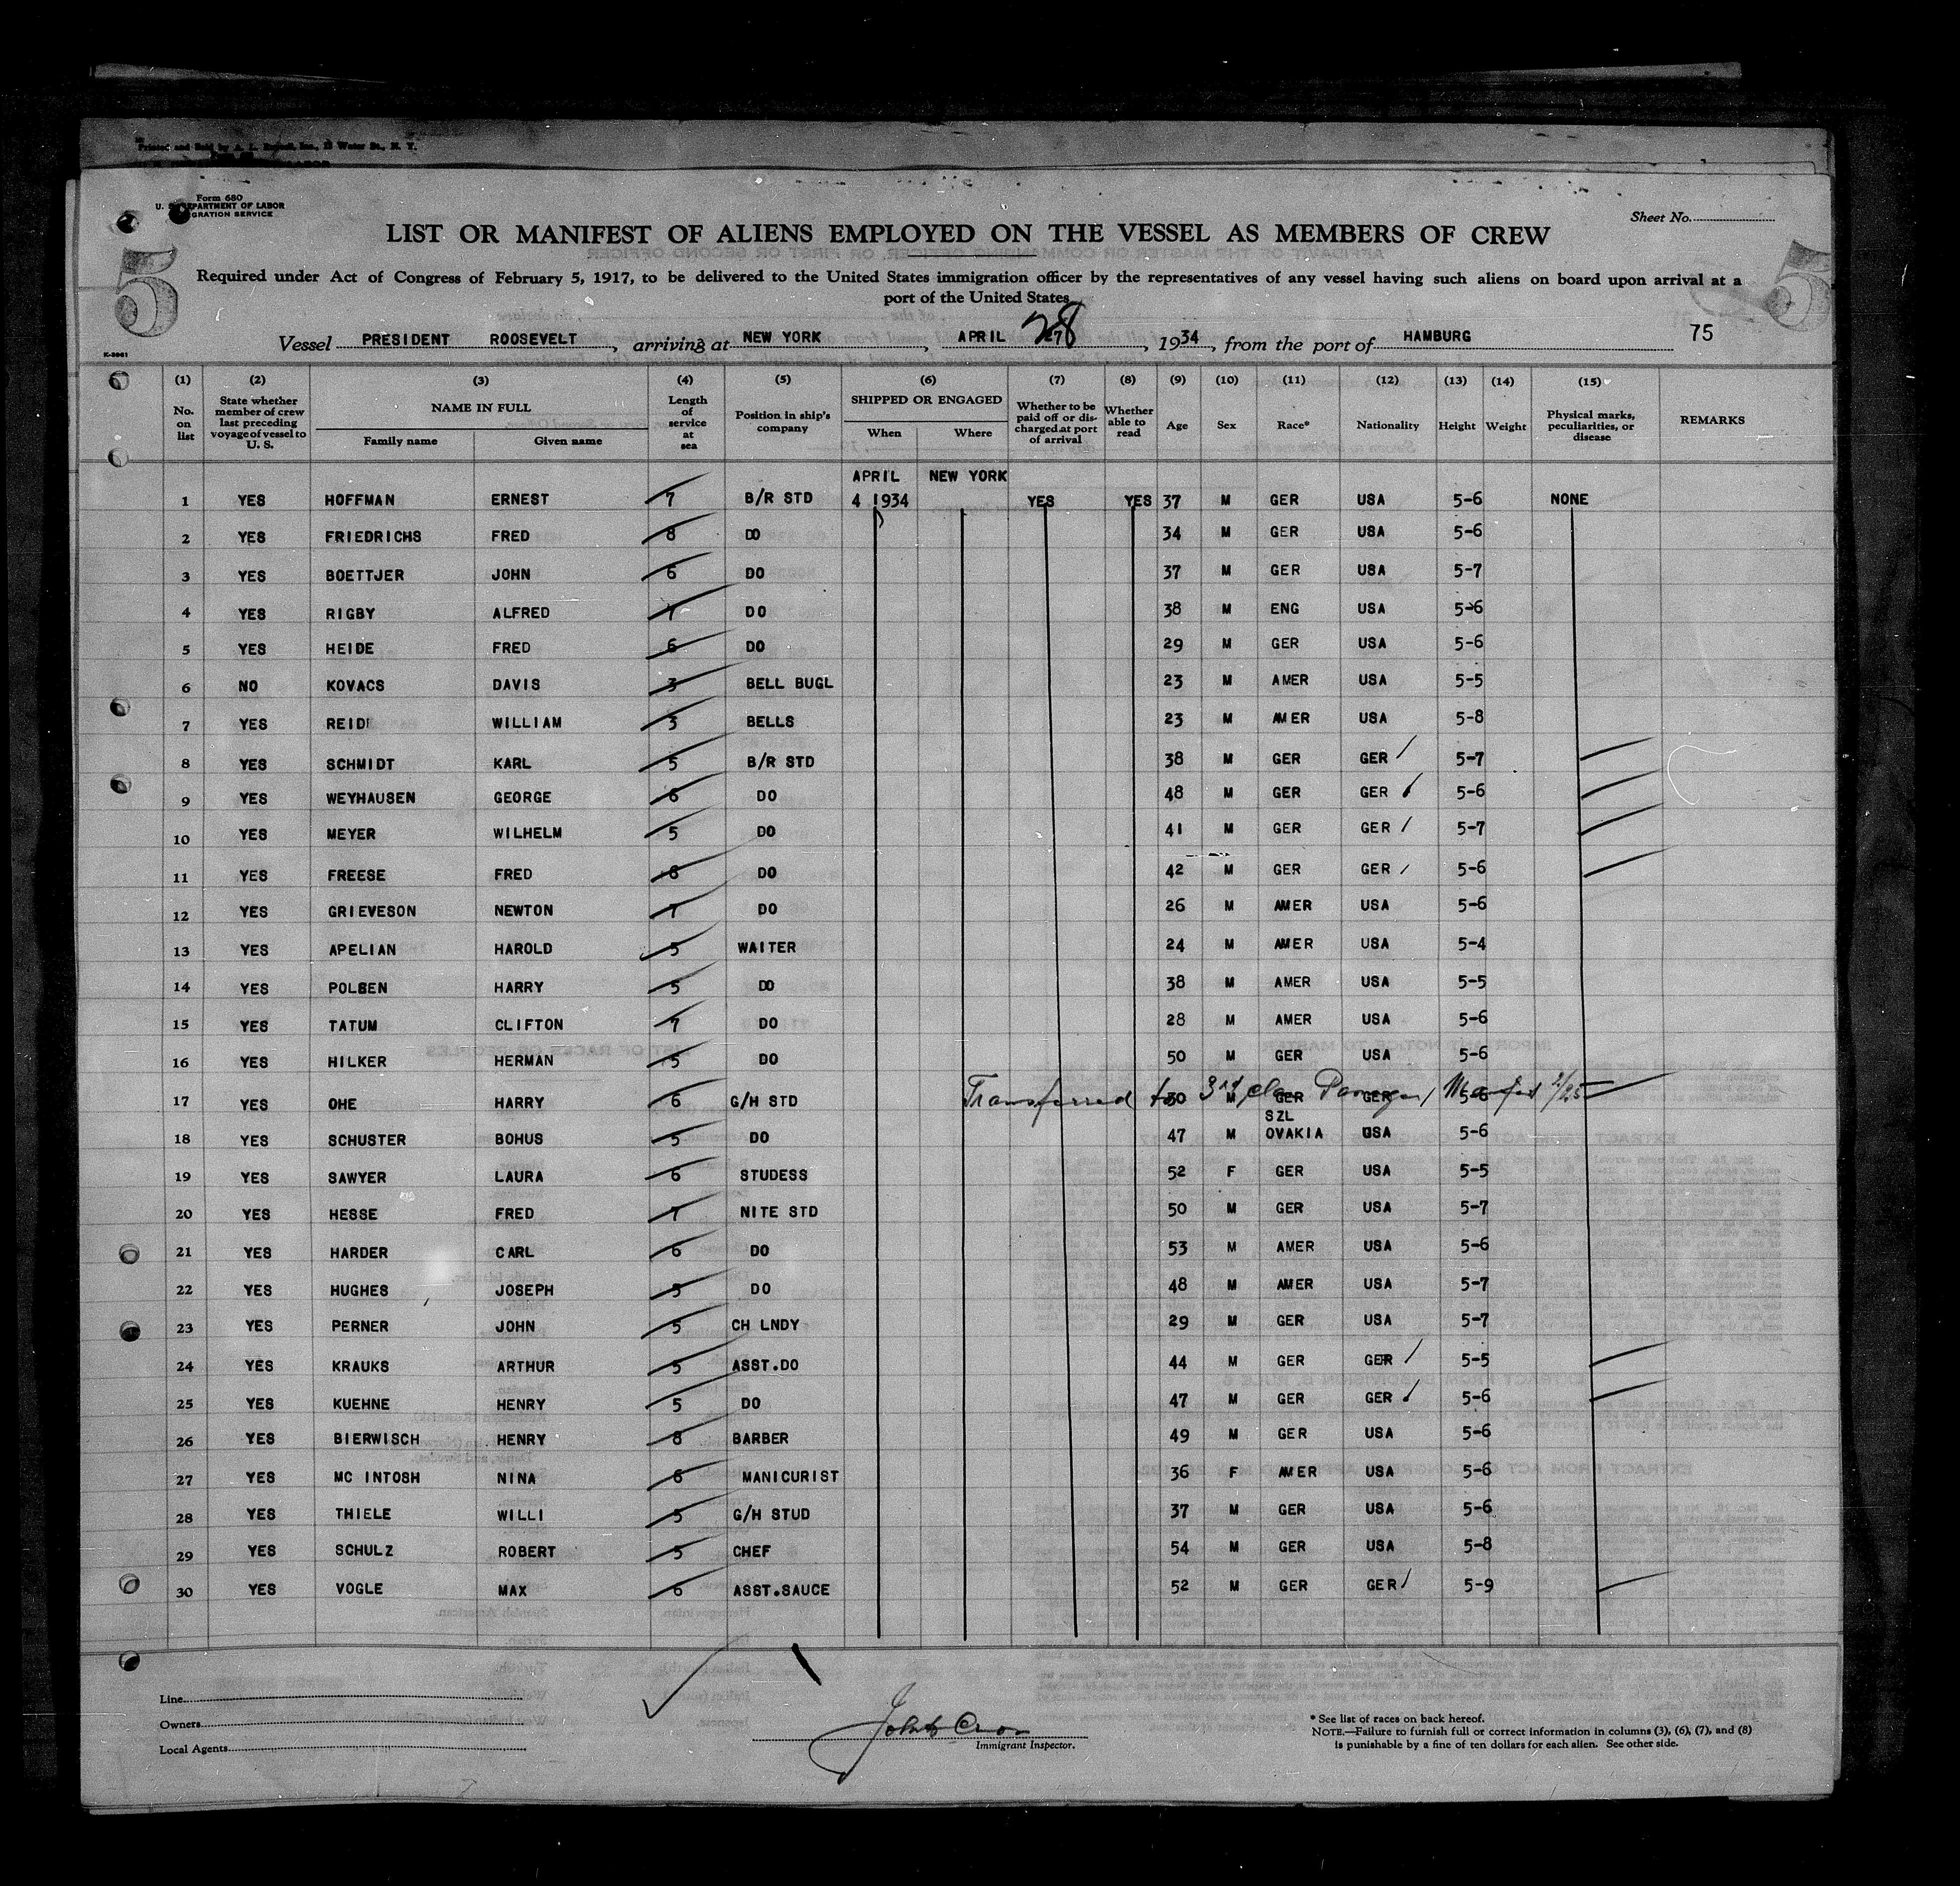 Printed and Sold by A. L. Russell, Inc., Water St., N. Y.
Form 680
U. S. DEPARTMENT OF LABOR
IMMIGRATION SERVICE
Sheet No.
5
LIST OR MANIFEST OF ALIENS EMPLOYED ON THE VESSEL AS MEMBERS OF CREW
5
Required under Act of Congress of February 5, 1917, to be delivered to the United States immigration officer by the representatives of any vessel having such aliens on board upon arrival at a
port of the United States
Vessel PRESIDENT ROOSEVELT, arriving at NEW YORK, APRIL 28, 1934, from the port of HAMBURG 75
(1) (2) (3) (4) (5) (6) (7) (8) (9) (10) (11) (12) (13) (14) (15)
No. on list State whether member of crew last preceding voyage of vessel to U. S. NAME IN FULL Family name Given name Length of service at sea Position in ship's company SHIPPED OR ENGAGED When Where Whether to be paid off or discharged at port of arrival Whether able to read Age Sex Race* Nationality Height Weight Physical marks, peculiarities, or disease REMARKS
APRIL NEW YORK
1 YES HOFFMAN ERNEST 7 B/R STD 4 1934 YES YES 37 M GER USA 5-6 NONE
2 YES FRIEDRICHS FRED 8 DO 34 M GER USA 5-6
3 YES BOETTJER JOHN 6 DO 37 M GER USA 5-7
4 YES RIGBY ALFRED 7 DO 38 M ENG USA 5-6
5 YES HEIDE FRED 6 DO 29 M GER USA 5-6
6 NO KOVACS DAVIS 3 BELL BUGL 23 M AMER USA 5-5
7 YES REID WILLIAM 3 BELLS 23 M AMER USA 5-8
8 YES SCHMIDT KARL 5 B/R STD 38 M GER GER 5-7
9 YES WEYHAUSEN GEORGE 6 DO 48 M GER GER 5-6
10 YES MEYER WILHELM 5 DO 41 M GER GER 5-7
11 YES FREESE FRED 8 DO 42 M GER GER 5-6
12 YES GRIEVESON NEWTON 7 DO 26 M AMER USA 5-6
13 YES APELIAN HAROLD 5 WAITER 24 M AMER USA 5-4
14 YES POLSEN HARRY 5 DO 38 M AMER USA 5-5
15 YES TATUM CLIFTON 7 DO 28 M AMER USA 5-6
16 YES HILKER HERMAN 5 DO 50 M GER USA 5-6
Transferred to 3rd Class Manifest
17 YES OHE HARRY 6 G/H STD 30 M GER GER 5-6
SZL
18 YES SCHUSTER BOHUS 5 DO 47 M OVAKIA USA 5-6
19 YES SAWYER LAURA 6 STUDESS 52 F GER USA 5-5
20 YES HESSE FRED 7 NITE STD 50 M GER USA 5-7
21 YES HARDER CARL 6 DO 53 M AMER USA 5-6
22 YES HUGHES JOSEPH 5 DO 48 M AMER USA 5-7
23 YES PERNER JOHN 5 CH LNDY 29 M GER USA 5-7
24 YES KRAUKS ARTHUR 5 ASST.DO 44 M GER GER 5-5
25 YES KUEHNE HENRY 5 DO 47 M GER GER 5-6
26 YES BIERWISCH HENRY 8 BARBER 49 M GER USA 5-6
27 YES MC INTOSH NINA 6 MANICURIST 36 F AMER USA 5-6
28 YES THIELE WILLI 5 G/H STUD 37 M GER USA 5-6
29 YES SCHULZ ROBERT 5 CHEF 54 M GER USA 5-8
30 YES VOGLE MAX 6 ASST.SAUCE 52 M GER GER 5-9
Line
Owners
Local Agents
Immigrant Inspector.
* See list of races on back hereof.
NOTE.—Failure to furnish full or correct information in columns (3), (6), (7), and (8)
is punishable by a fine of ten dollars for each alien. See other side.